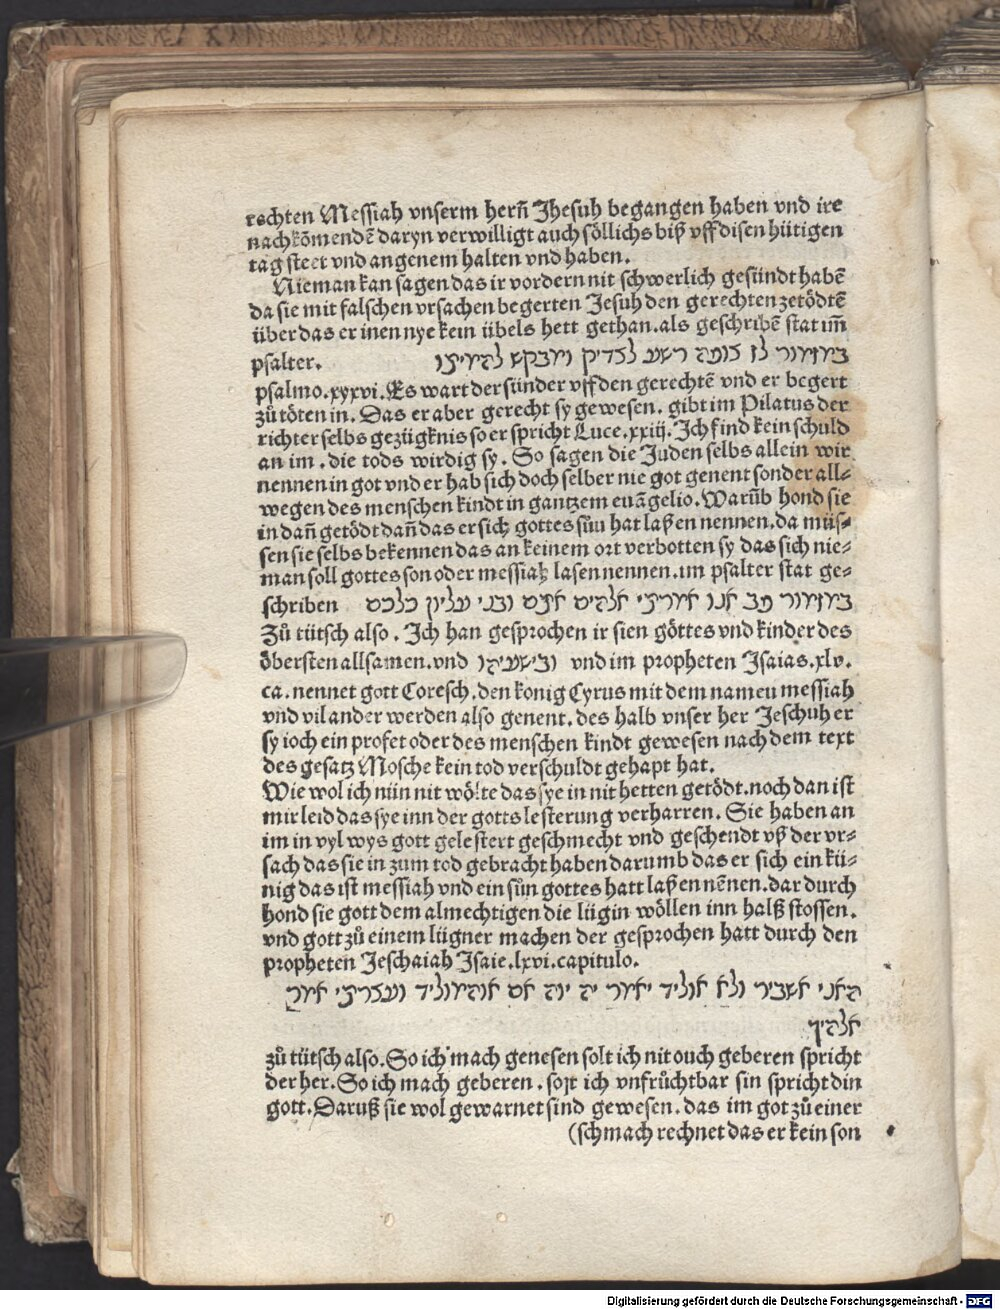 rechten Messiah vnserm hern̄ Jhesuh begangen haben vnd ire
nachkōmendē daryn verwilligt auch söllichs biß vff disen hütigen
tag steet vnd angenem halten vnd haben.
Nieman kan sagen das ir vordern nit schwerlich gesündt habē
da sie mit falschen vrsachen begerten Jesuh den gerechten zetödtē
über das er inen nye kein übels hett gethan. als geschribē stat im̄
psalter. במזמור לז צופה רשע לצדיק ומבקש להמיתו
psalmo. xxxvi. Es wart der sünder vff den gerechtē vnd er begert
zů töten in. Das er aber gerecht sy gewesen. gibt im Pilatus der
richter selbs gezügknis so er spricht Luce. xxiij. Ich find kein schuld
an im. die tods wirdig sy. So sagen die Juden selbs allein wir
nennen in got vnd er hab sich doch selber nie got genent sonder all⸗
wegen des menschen kindt in gantzem euāgelio. Warūb hond sie
in dan̄ getödt dan̄ das er sich gottes sün hat laßen nennen. da müs⸗
sen sie selbs bekennen das an keinem ort verbotten sy das sich nie⸗
man soll gottes son oder messiah lasen nennen. im psalter stat ge⸗
schriben במזמור פב אנו אמרתי אלהים אתם ובני עליון כלכם
Zů tütsch also. Ich han gesprochen ir sien göttes vnd kinder des
öbersten allsamen. vnd ובישעיהו vnd im propheten Isaias. xlv.
ca. nennet gott Coresch. den konig Cyrus mit dem namen messiah
vnd vil ander werden also genent. des halb vnser her Jeschuh er
sy ioch ein profet oder des menschen kindt gewesen nach dem text
des gesatz Mosche kein tod verschuldt gehapt hat.
Wie wol ich nün nit wölte das sye in nit hetten getödt. noch dan ist
mir leid das sye inn der gotts lesterung verharren. Sie haben an
im in vyl wys gott gelestert geschmecht vnd geschendt vß der vr⸗
sach das sie in zum tod gebracht haben darumb das er sich ein kü⸗
nig das ist messiah vnd ein sůn gottes hatt laßen nēnen. dar durch
hond sie gott dem almechtigen die lügin wöllen inn halß stossen.
vnd gott zů einem lügner machen der gesprochen hatt durch den
propheten Jeschaiah Isaie. lxvi. capitulo.
האני אשביר ולא אוליד יאמר יה יוה אם אוהמוליד ועצרתי אמר
אלהיך
zů tütsch also. So ich mach genesen solt ich nit ouch geberen spricht
der her. So ich mach geberen. solt ich vnfrůchtbar sin spricht din
gott. Daruß sie wol gewarnet sind gewesen. das im got zů einer
(schmach rechnet das er kein son
Digitalisierung gefördert durch die Deutsche Forschungsgemeinschaft - DFG